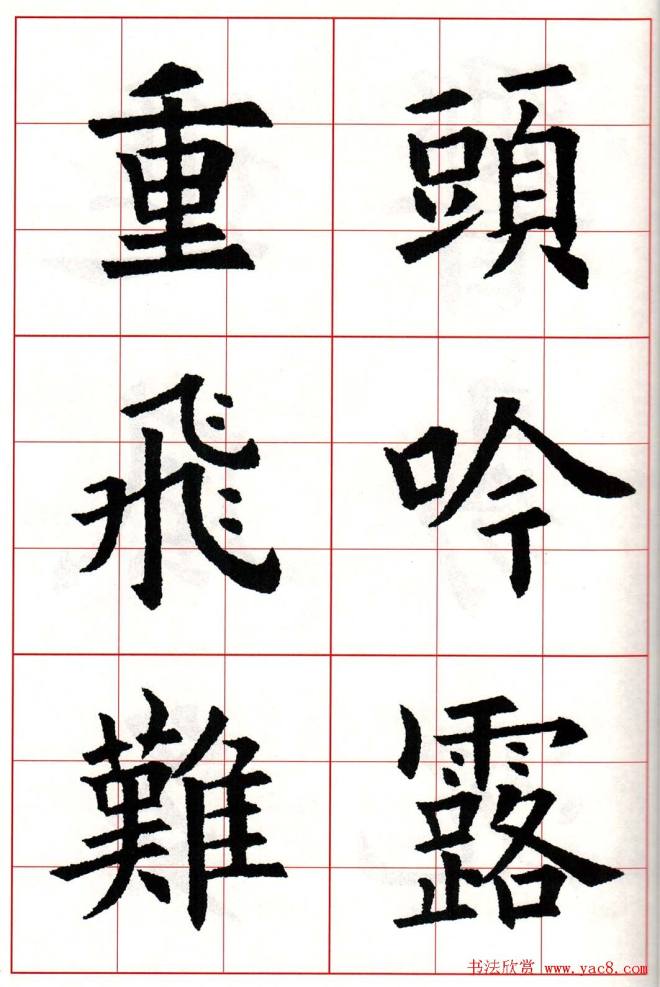 頭吟露
重飛難
书法欣赏 www.yac8.com